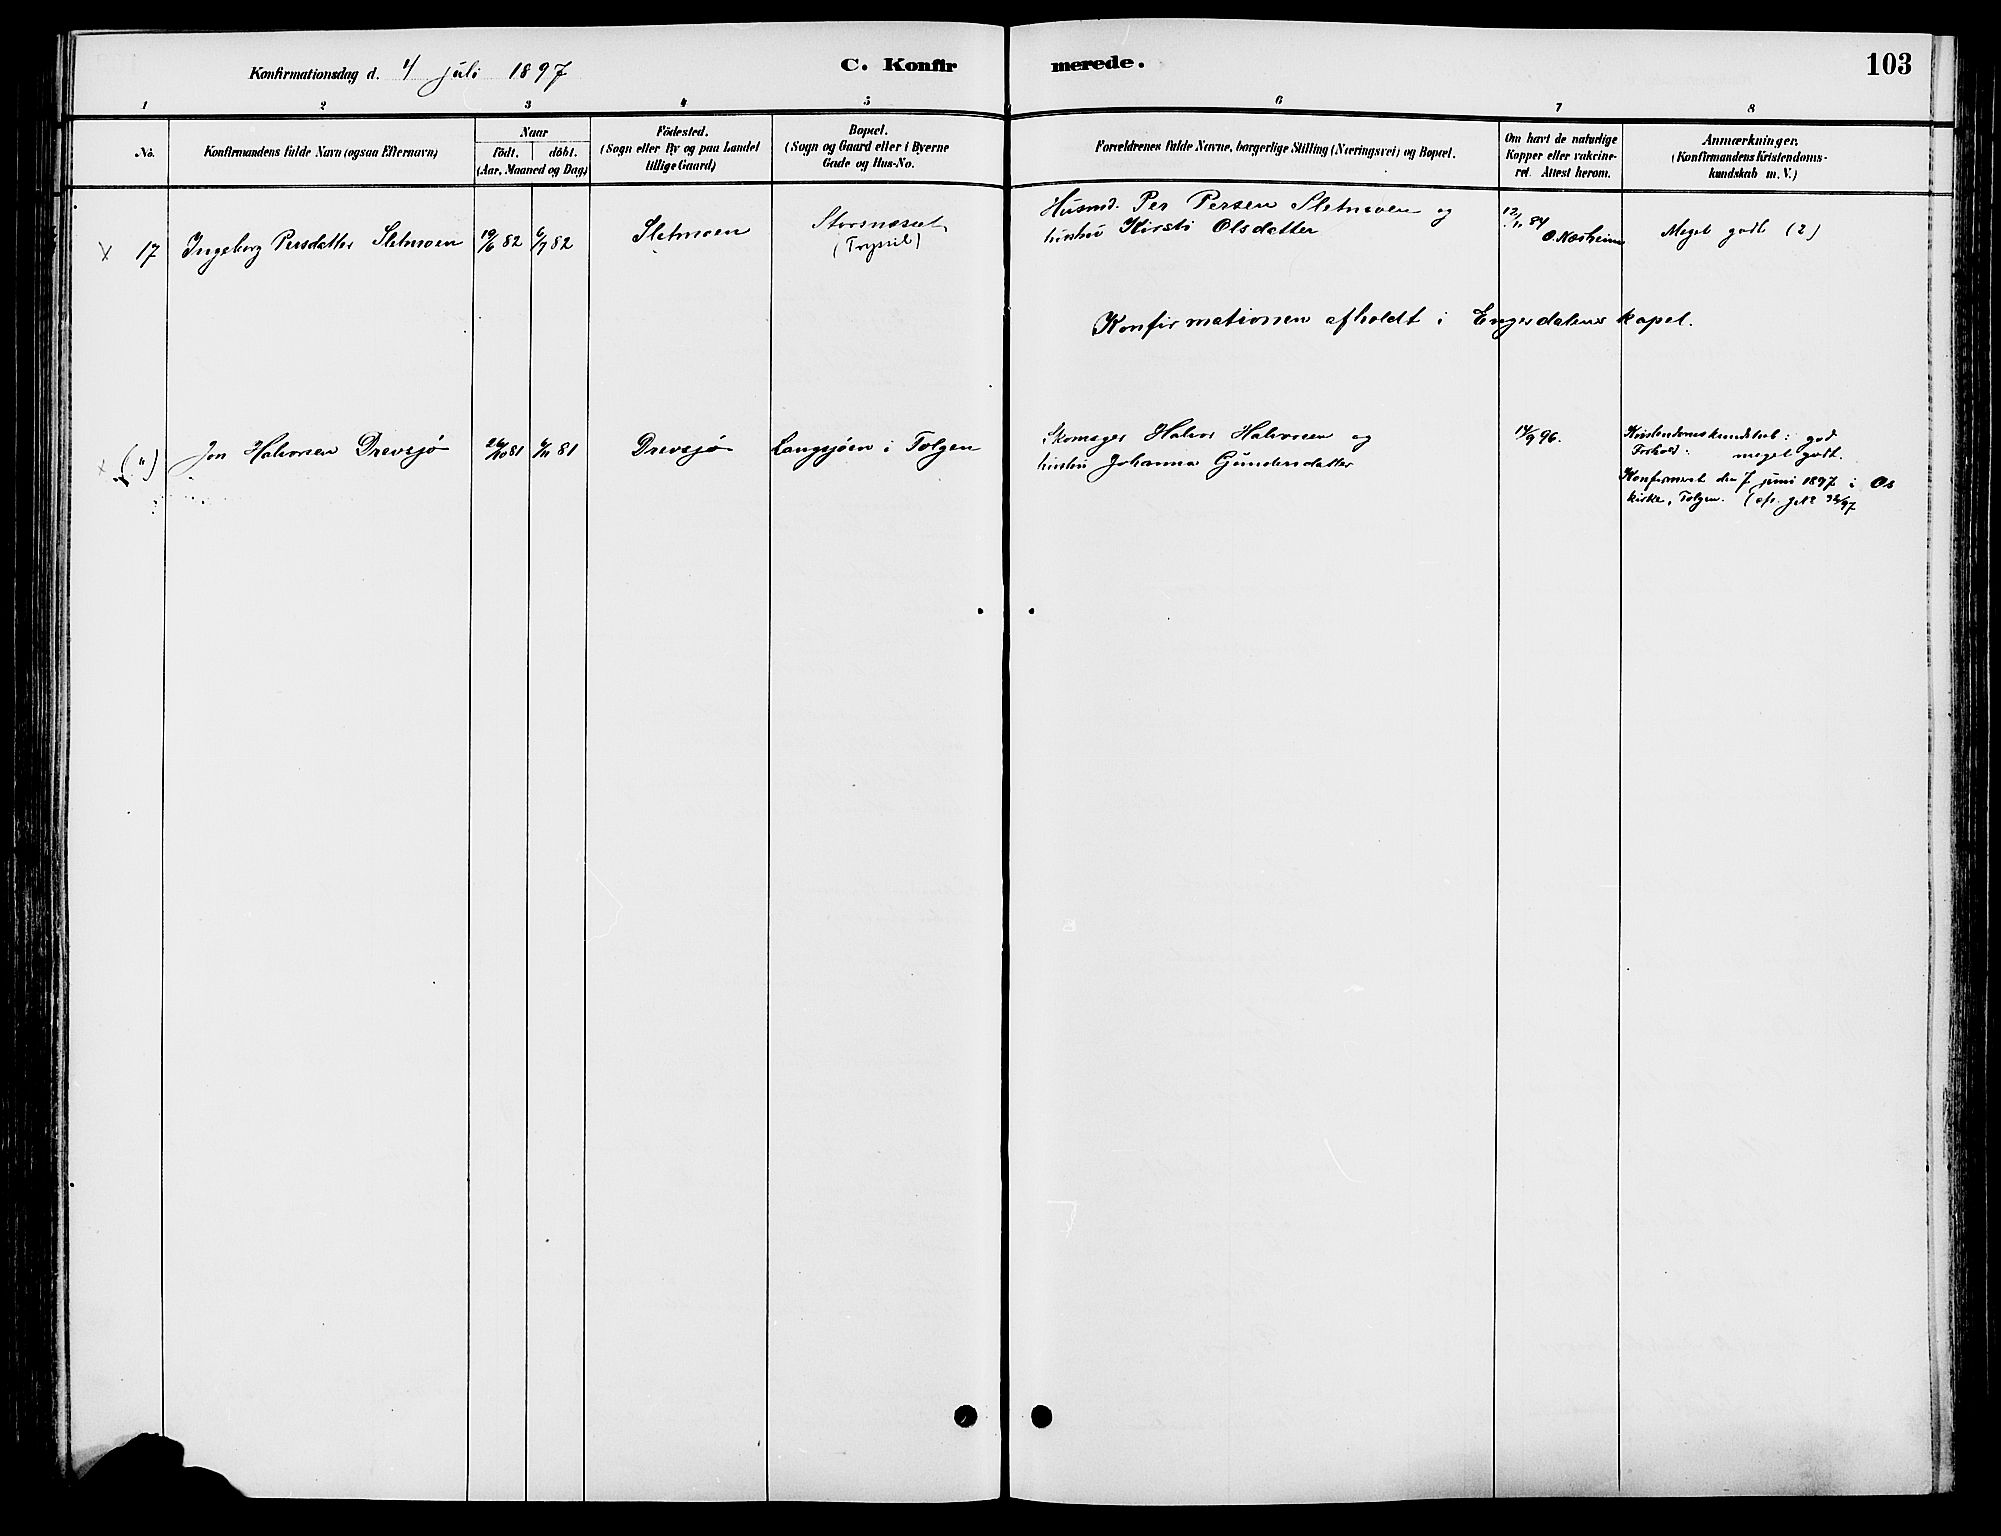 Konfirmationsdag d. 4 juli 1897
C. Konfirmerede.
103
1 2 3 4 5 6 7 8
No.
Konfirmandens fulde Navn (ogsaa Efternavn)
Naar
Födt. döbt.
(Aar, Maaned og Dag)
Födested.
(Sogn eller By og paa Landet
tillige Gaard)
Bopæl.
(Sogn og Gaard eller i Byerne
Gade og Hus-No.
Forældrenes fulde Navne, borgerlige Stilling (Næringsvei) og Bopæl.
Om havt de naturlige
Kopper eller vakcine-
ret. Attest herom.
Anmærkninger.
(Konfirmandens Kristendoms-
kundskab m. V.)
x 17 Ingeborg Persdatter Sletmoen 19/6 82 6/7 82 Sletmoen Storsnæsset
(Trysil)
Husmd. Per Persen Sletmoen og
hustru Kirsti Olsdatter
84
O. Næsheim
Meget godt (2)
Konfirmationen afholdt i Engerdalens kapel.
x (") Jon Halvorsen Drevsjø 26/10 81 6/11 81 Drevsjø Langsjøen i Tolgen
Skomager Halvor Halvorsen og
hustru Johanna Gundersdatter
14/9 96.
Kristendomskundskab: god
Forhold: meget godt.
Konfirmeret den 7 juni 1897 i Os
kirke, Tolgen.